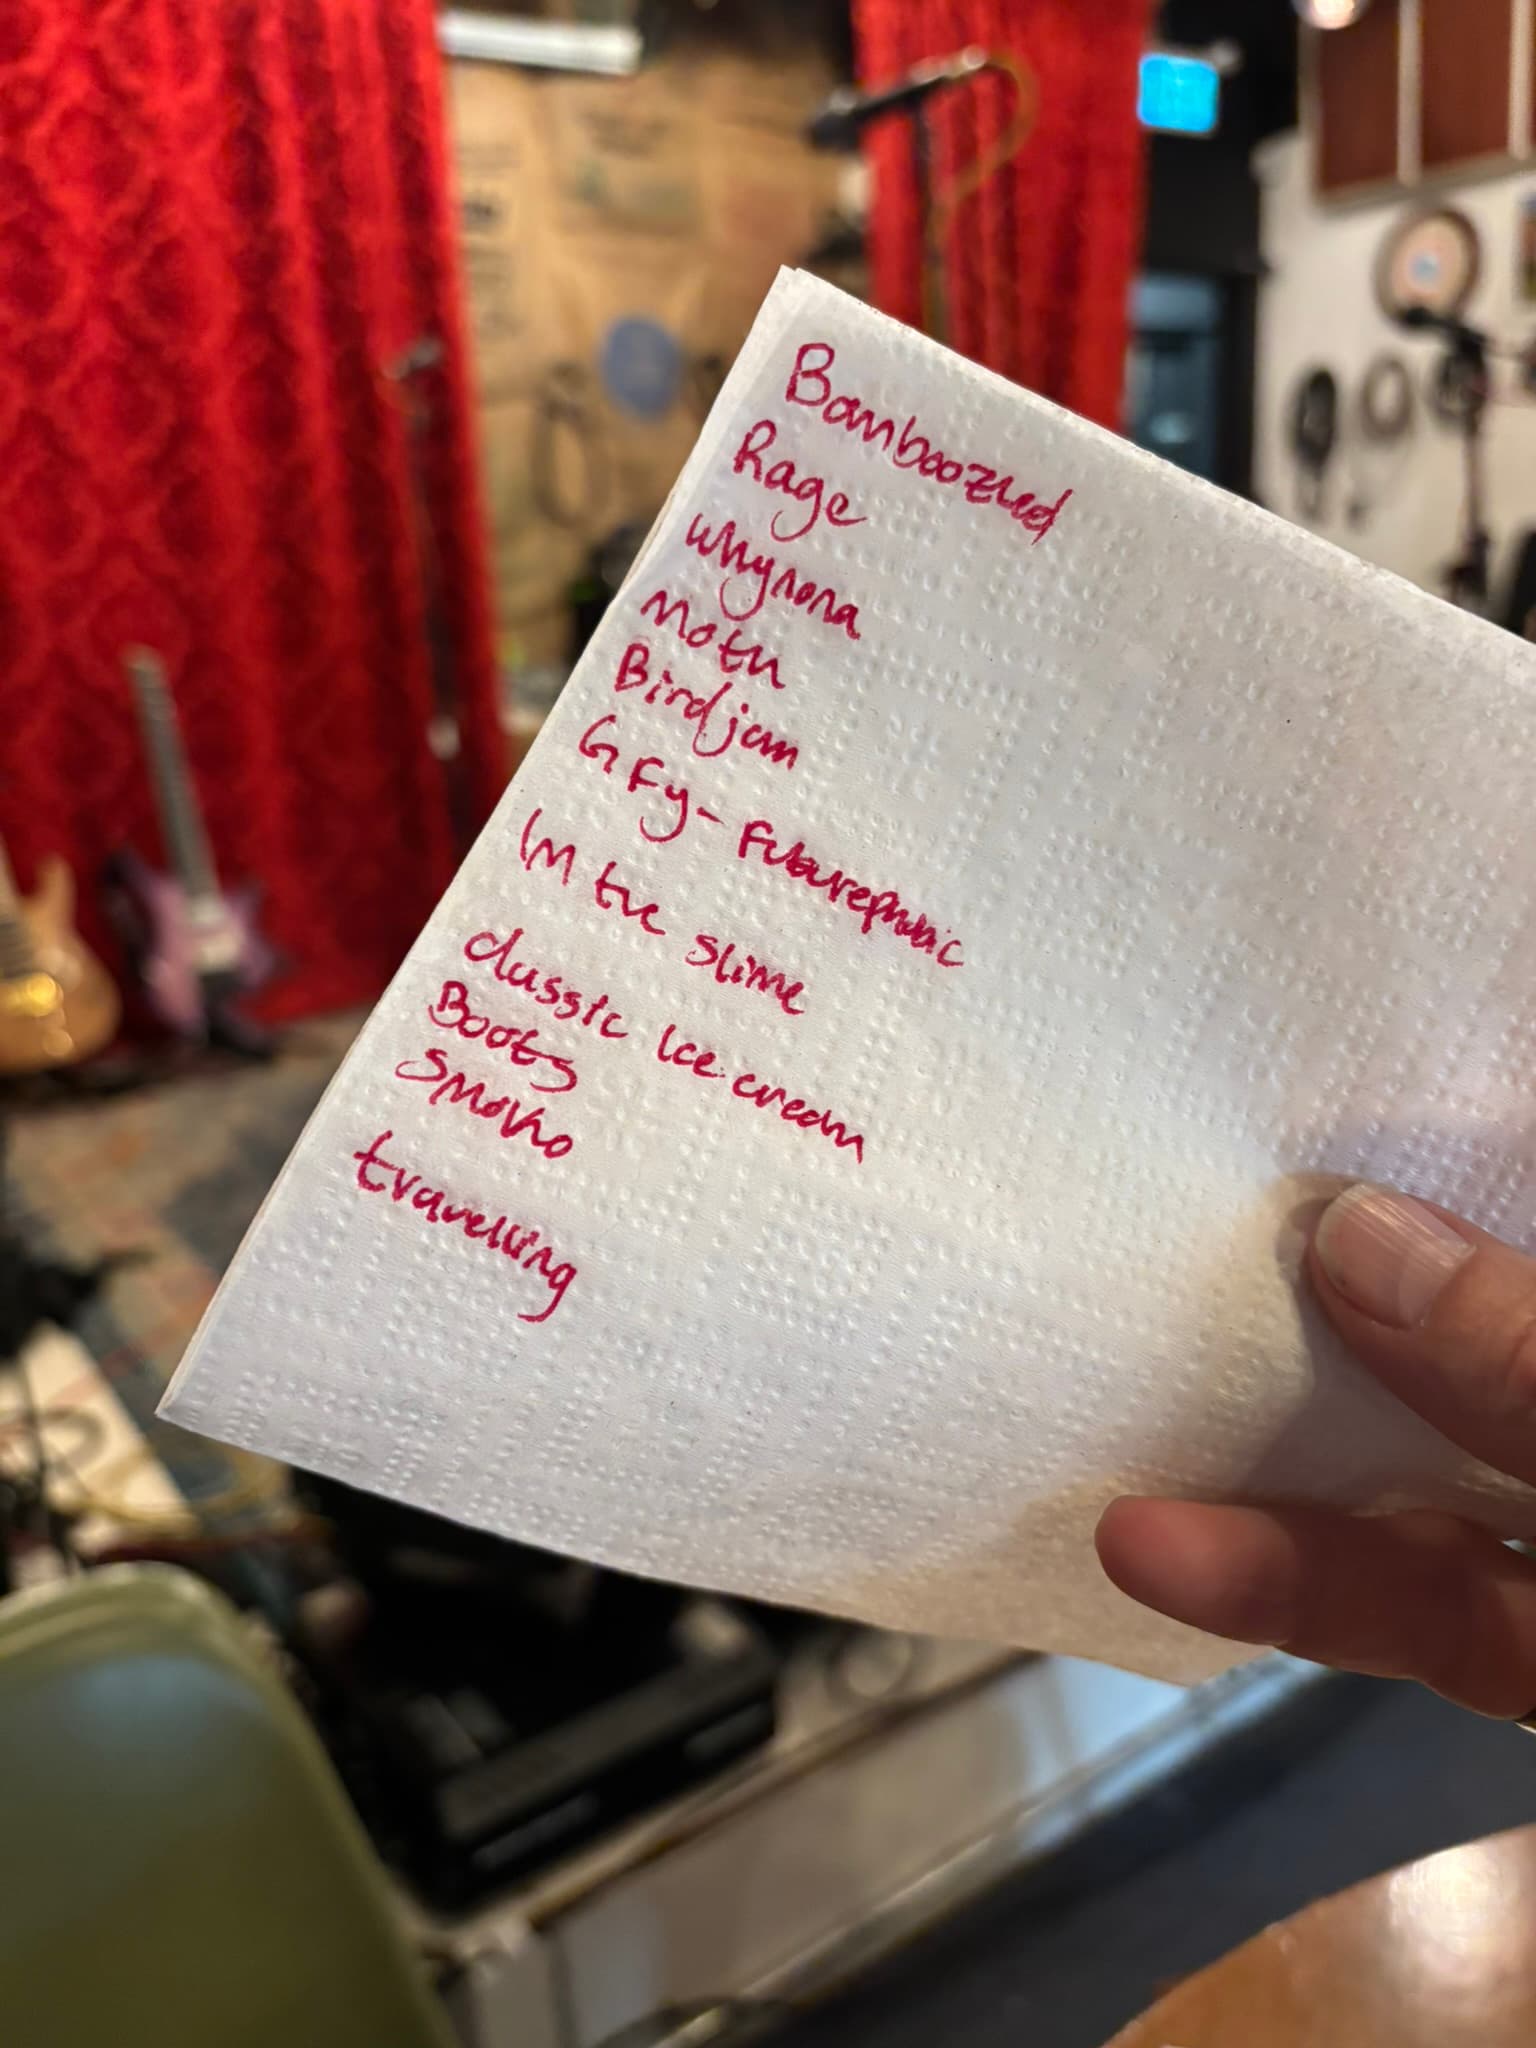 Bamboozled
Rage
Whynona
Moth
Birdjam
GFY - Futurephobic
Im the slime
classic ice cream
Boots
Smoko
travelling